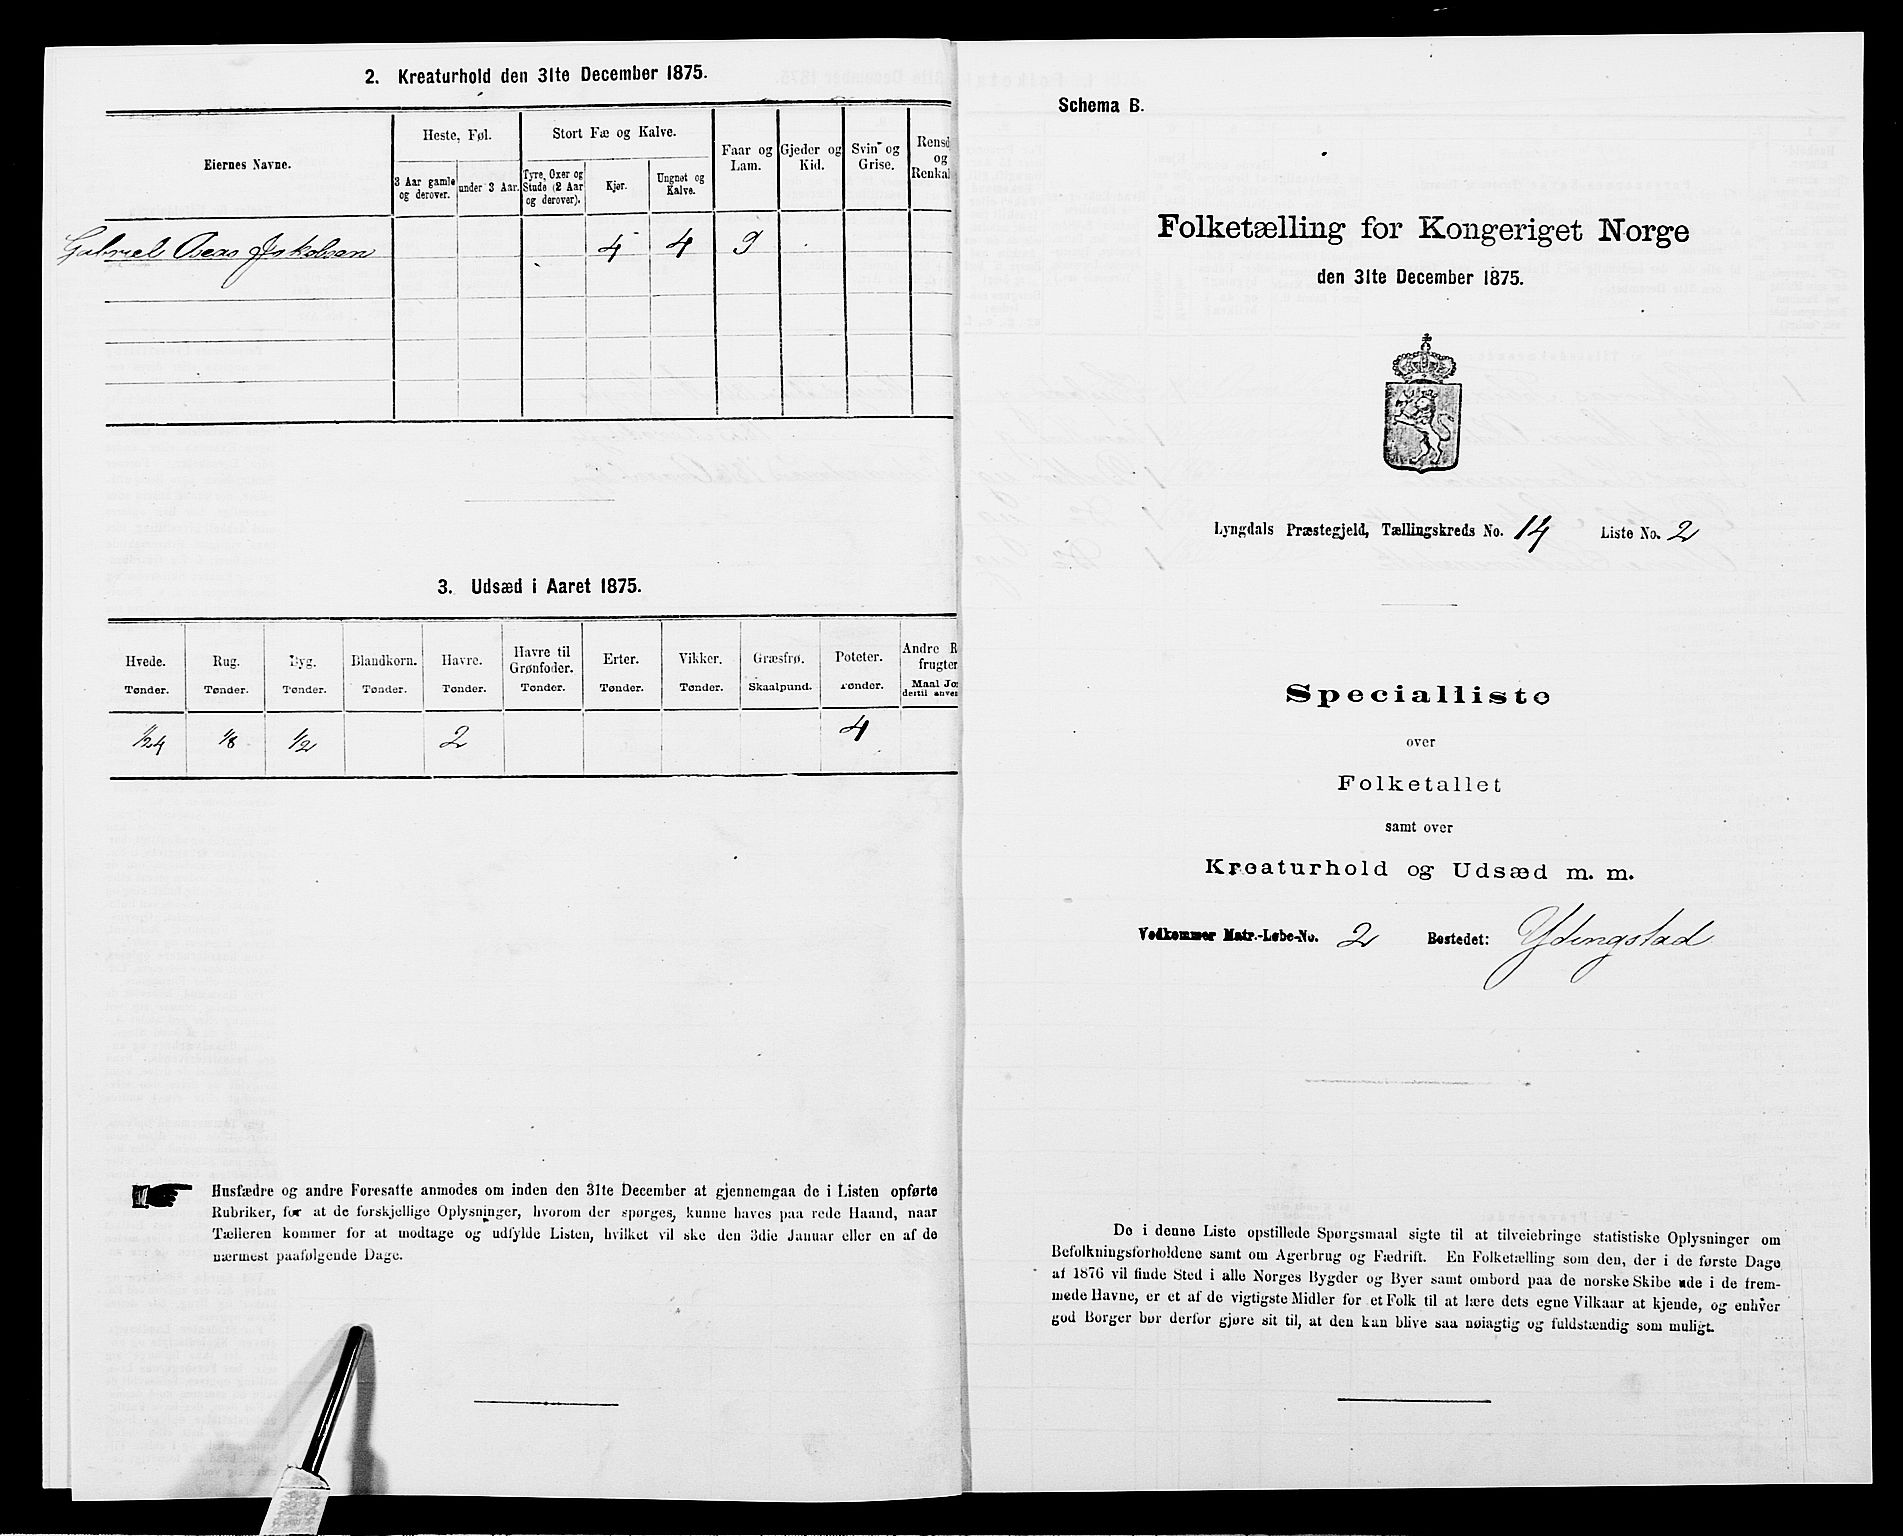 2. Kreaturhold den 31te December 1875.
Eiernes Navne.
Heste, Føl.
Stort Fæ og Kalve.
Faar og Lam.
Gjeder og Kid.
Svin og Grise.
Rensd
og
Renkal
3 Aar gamle og derover.
under 3 Aar.
Tyre, Oxer og Stude (2 Aar og derover).
Kjør.
Ungnøt og Kalve.
Gabriel Jakobsen 4 4 9
3. Udsæd i Aaret 1875.
Hvede. Rug. Byg. Blandkorn. Havre. Havre til Grønfoder. Erter. Vikker. Græsfrø. Poteter. Andre R frugter
Tønder. Tønder. Tønder. Tønder. Tønder. Tønder. Tønder. Tønder. Skaalpund. Tønder. Maal Jo dertil anven
1/24 1/8 1/2 2 4
Husfædre og andre Foresatte anmodes om inden den 31te December at gjennemgaa de i Listen opførte
Rubriker, for at de forskjellige Oplysninger, hvorom der spørges, kunne haves paa rede Haand, naar
Tælleren kommer for at modtage og udfylde Listen, hvilket vil ske den 3die Januar eller en af de
nærmest paafølgende Dage.
Schema B.
Folketælling for Kongeriget Norge
den 31te December 1875.
Lyngdals Præstegjeld, Tællingskreds No. 14 Liste No. 2
Specialliste
over
Folketallet
samt over
Kreaturhold og Udsæd m. m.
Vedkommer Matr.-Løbe-No. 2 Bostedet: Ydingstad
De i denne Liste opstillede Spørgsmaal sigte til at tilveiebringe statistiske Oplysninger om
Befolkningsforholdene samt om Agerbrug og Fædrift. En Folketælling som den, der i de første Dage
af 1876 vil finde Sted i alle Norges Bygder og Byer samt ombord paa de norske Skibe ude i de frem-
mede Havne, er et af de vigtigste Midler for et Folk til at lære dets egne Vilkaar at kjende, og enhver
god Borger bør derfor gjøre sit til, at den kan blive saa nøiagtig og fuldstændig som muligt.